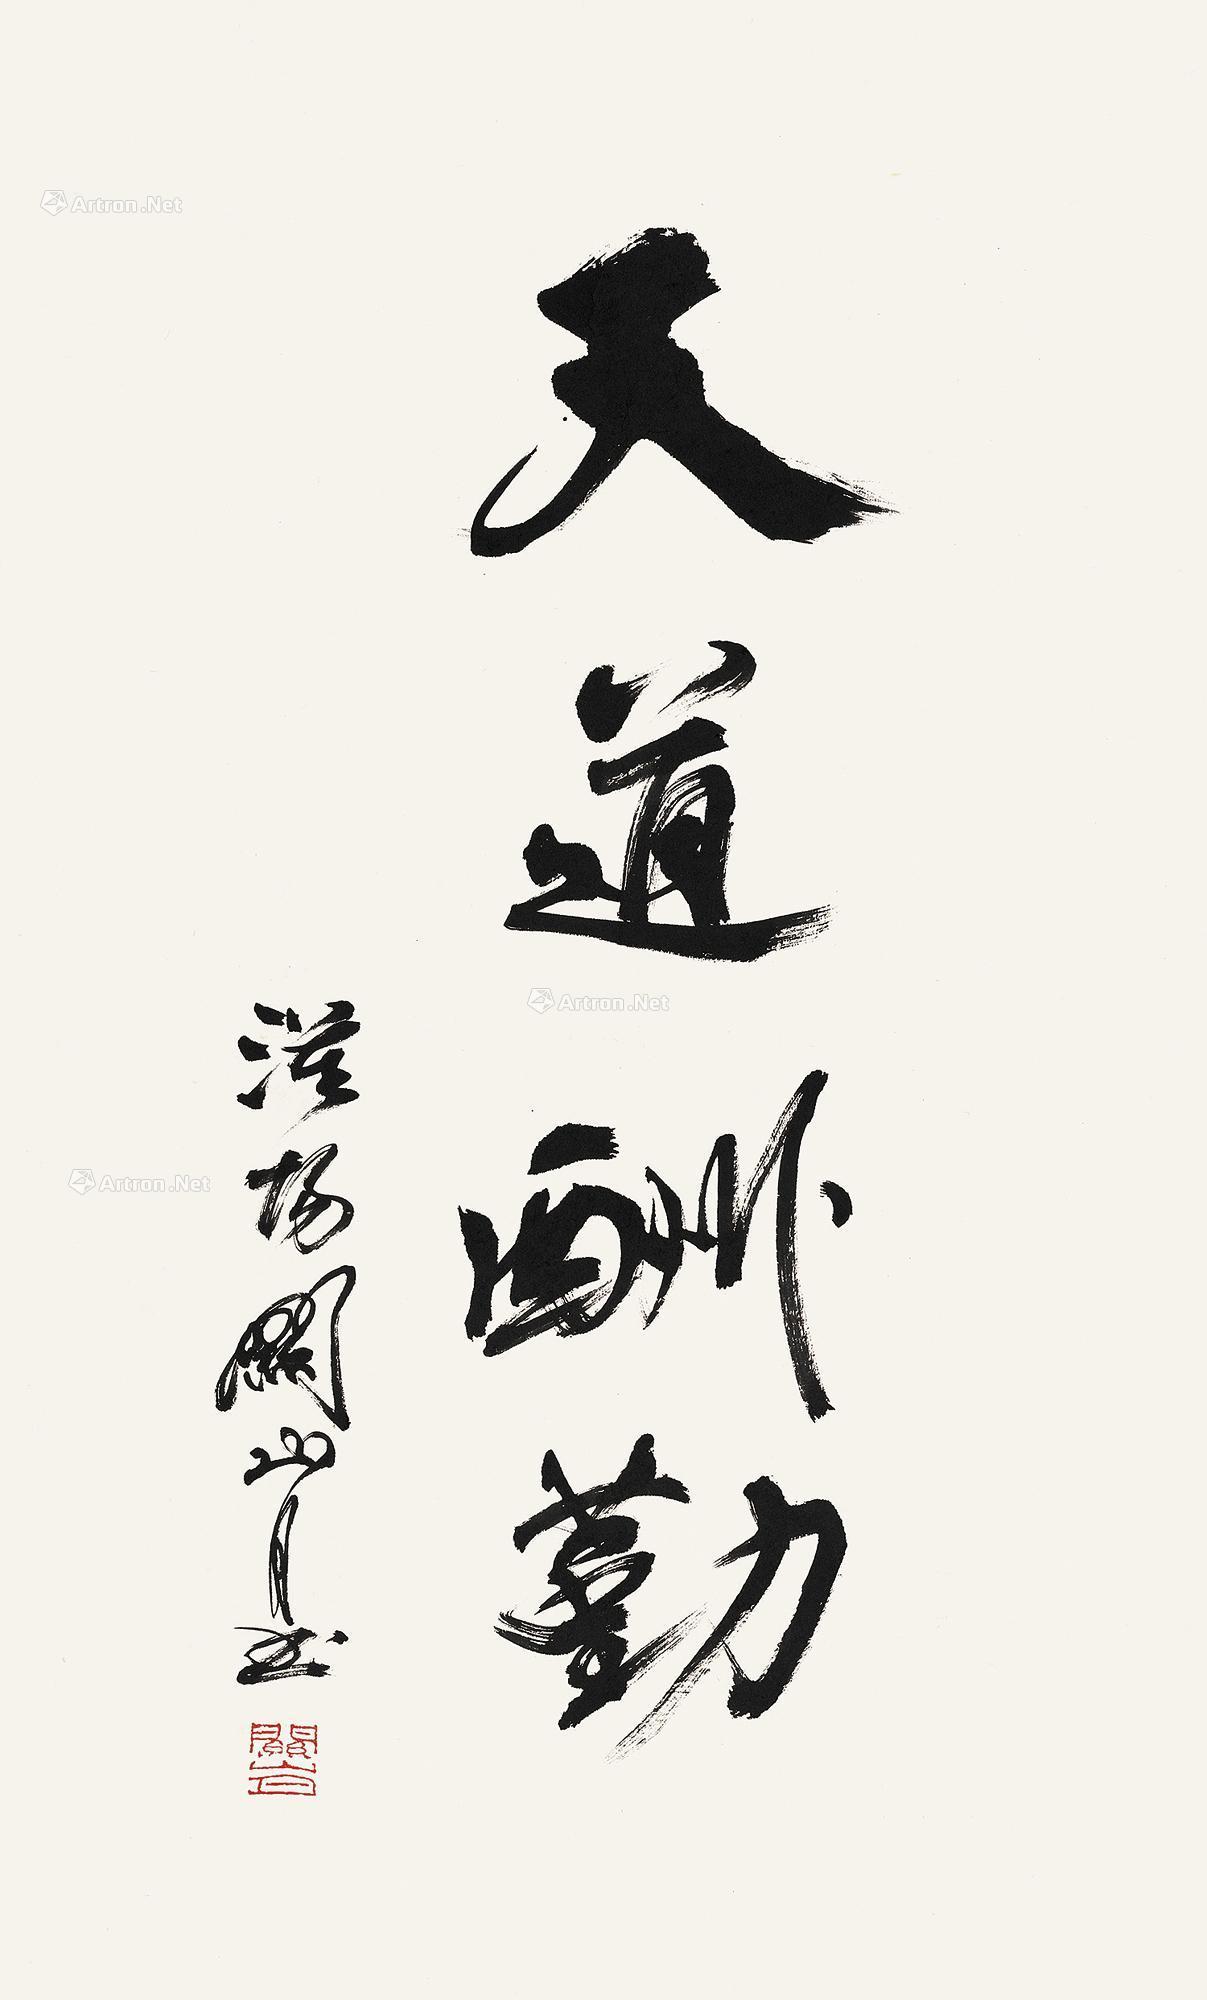 天道酬勤
漢陽關山月書
關山月
Artron.Net
Artron.Net
Artron.Net